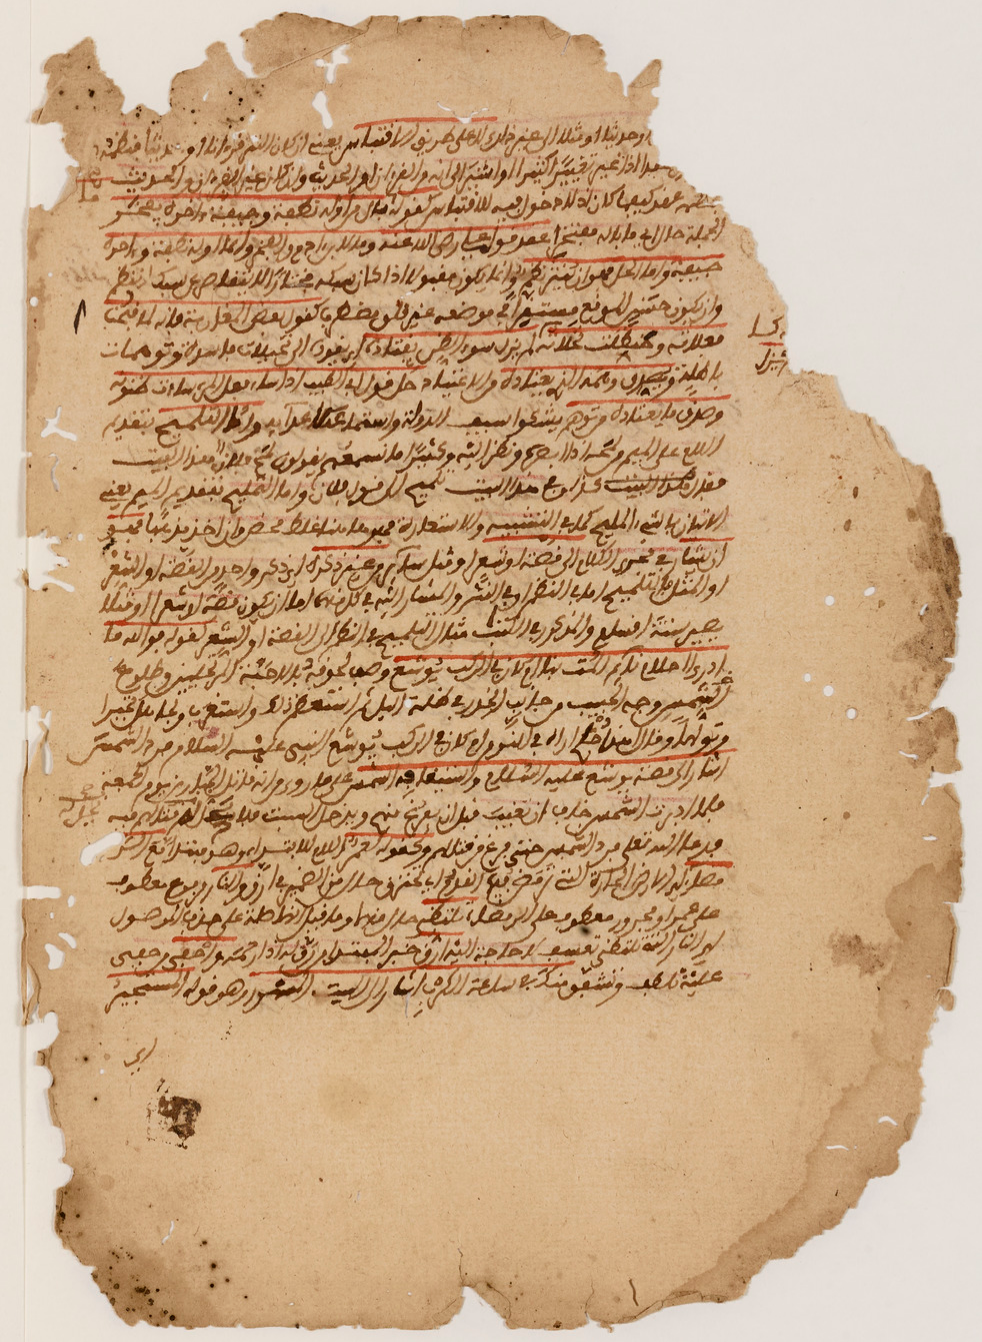 أو حديثا أو مثلا أو غير ذلك لا على طريق الاقتباس يعني ان كان النثر قرءانا او حديثا فنظمه
عقدا اذا غير تغييرا كثيرا او اشير الى انه من القرءان او الحديث وان كان غير القرءان والحديث
عقد كيفما كان اذ لا دخول فيه للاقتباس كقوله ما بال من اوله نطفة وجيفة ءاخره يفخر
الجملة حال اي ما باله مفتخرا عقد قول علي رضي الله عنه وما لابن ءادم والفخر وانما اوله نطفة وءاخره
جيفة واما الحل فهو ان ينثر نظم وانما يكون مقبولا اذا كان سبكه مختارا لا يتقاصر عن سبك النظم
وان يكون حسن الموقع مستقرا في موضعه غير قلق كقول بعض المغاربة فانه لما قبحت
فعلاته وحنظلت نخلاته لم يزل سوء الظن يقتاده اي يقوده الى تخيلات فاسدة وتوهمات
باطلة ويصدق توهمه الذي يعتاده من الاعتياد حل قول ابي الطيب اذا ساء فعل المرء ساءت ظنونه
وصدق ما يعتاده من توهم يشكوا سيف الدولة واستماعه اعدائه واما التلميح بتقديم
اللام على الميم من لمحه اذا ابصره ونظر اليه وكثيرا ما تسمعهم يقولون لمح فلان هذا البيت
فقال كذا وفي هذا البيت تلميح الى قول فلان واما التمليح بتقديم الميم يعني
الاتيان بالشيء المليح كما في التشبيه والاستعارة فهو هاهنا غلط محض وان اخذ مذهبا فهو
ان يشار في فحوى الكلام الى قصة او شعر او مثل سائر من غير ذكره اي ذكر واحد من القصة او الشعر
او المثل فالتلميح اما في النظم او في النثر والمشار اليه في كل منهما اما ان يكون قصة او شعرا او مثلا
يصير ستة اقسام والمذكور في الكتب مثال التلميح في النظم الى القصة او الشعر كقوله فوالله ما
ادري ااحلام نائم المت بنا ام كان في الركب يوشع وصف لحوقه بالاحبة المرتحلين وطلوع
الشمس وجه الحبيب من جانب الخدر في ظلمة الليل ثم استعظم ذلك واستغرب وتجاهل تحيرا
وتولها وقال اهذا حلم اراه في النوم ام كان في الركب يوشع النبي عليه السلام فرد الشمس
اشار الى قصة يوشع عليه السلام واستيقافه الشمس على ما روي من انه قاتل الجبارين يوم الجمعة
فلما ادبرت الشمس خاف ان تغيب قبل ان يفرغ منهم ويدخل السبت فلا قتالهم فيه
فدعا الله تعلى فرد الشمس حتى فرغ من قتالهم وكقوله لعمرو اللام للابتداء وهو مبتدا مع الر
مضاء اي الارض الحارة التي ترمض فيها القدم اي تحترق حال من الضمير في ارق والنار مرفوع معطوف
على عمرو او مجرور معطوف على الرمضاء تلتظي حال منها وما قيل انها صلة على حذف الموصول
اي النار التي تلتظي تعسف لا حاجة اليه ارق خبر المبتدا من رق له اذا رحمه واحفى من حفي
عليه تلطف وتشفق منك في ساعة الكرب اشار الى البيت المشهور وهو قوله المستجير